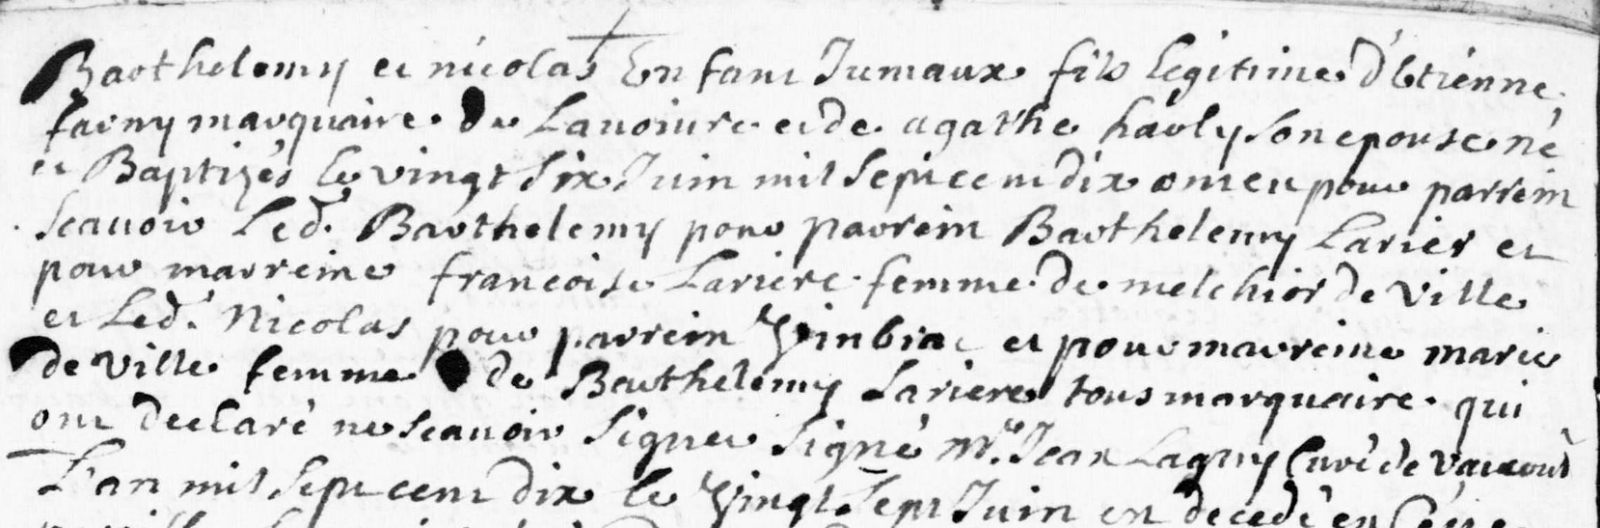 Barthelemy et nicolas Enfant Jumaux fils legitime d'Etienne
farny marquaire de Lavoivre et de agathe harly son epouse né
et Baptizés le vingt six Juin mil sept cent dix ont eu pour parrein
scauoir Led. Barthelemy pour parrein Barthelemy Larier et
pour marreine francoise Lariere femme de melchior de Ville
et Led. Nicolas pour parrein et pour marreine marie
de Ville femme de Barthelemy Lariere tous marquaire qui
ont declaré ne scauoir signer signé Mre. Jean Laguy Curé de
L'an mil sept cent dix le vingt sept Juin est decedé en